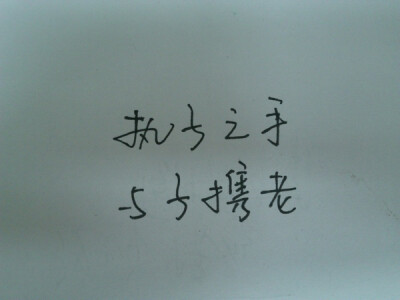 执子之手
与子携老